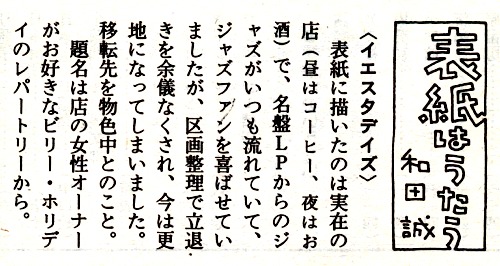 表紙はうたう
和田誠
〈イエスタデイズ〉
表紙に描いたのは実在の
店（昼はコーヒー、夜はお
酒）で、名盤ＬＰからのジ
ャズがいつも流れていて、
ジャズファンを喜ばせてい
ましたが、区画整理で立退
きを余儀なくされ、今は更
地になってしまいました。
移転先を物色中とのこと。
題名は店の女性オーナー
がお好きなビリー・ホリデ
イのレパートリーから。